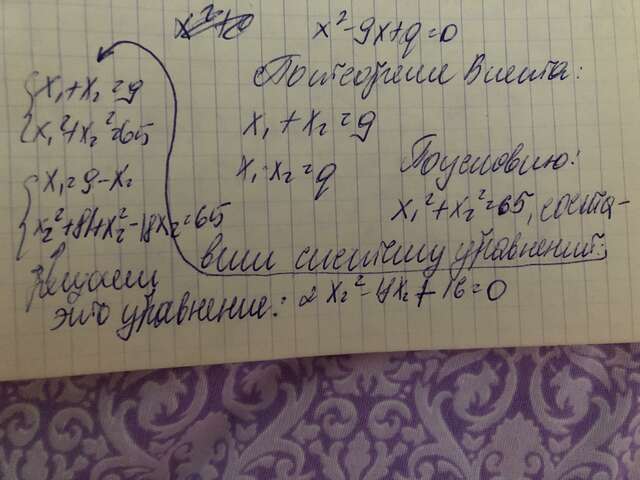 x²-9x+q=0
По теореме Виета:
x₁+x₂=9
x₁·x₂=q
По условию:
x₁²+x₂²=65, соста-
вим систему уравнений:
x₁+x₂=9
x₁²+x₂²=65
x₁=9-x₂
x₂²+81+x₂²-18x₂=65
Решаем
это уравнение: 2x₂²-18x₂+16=0